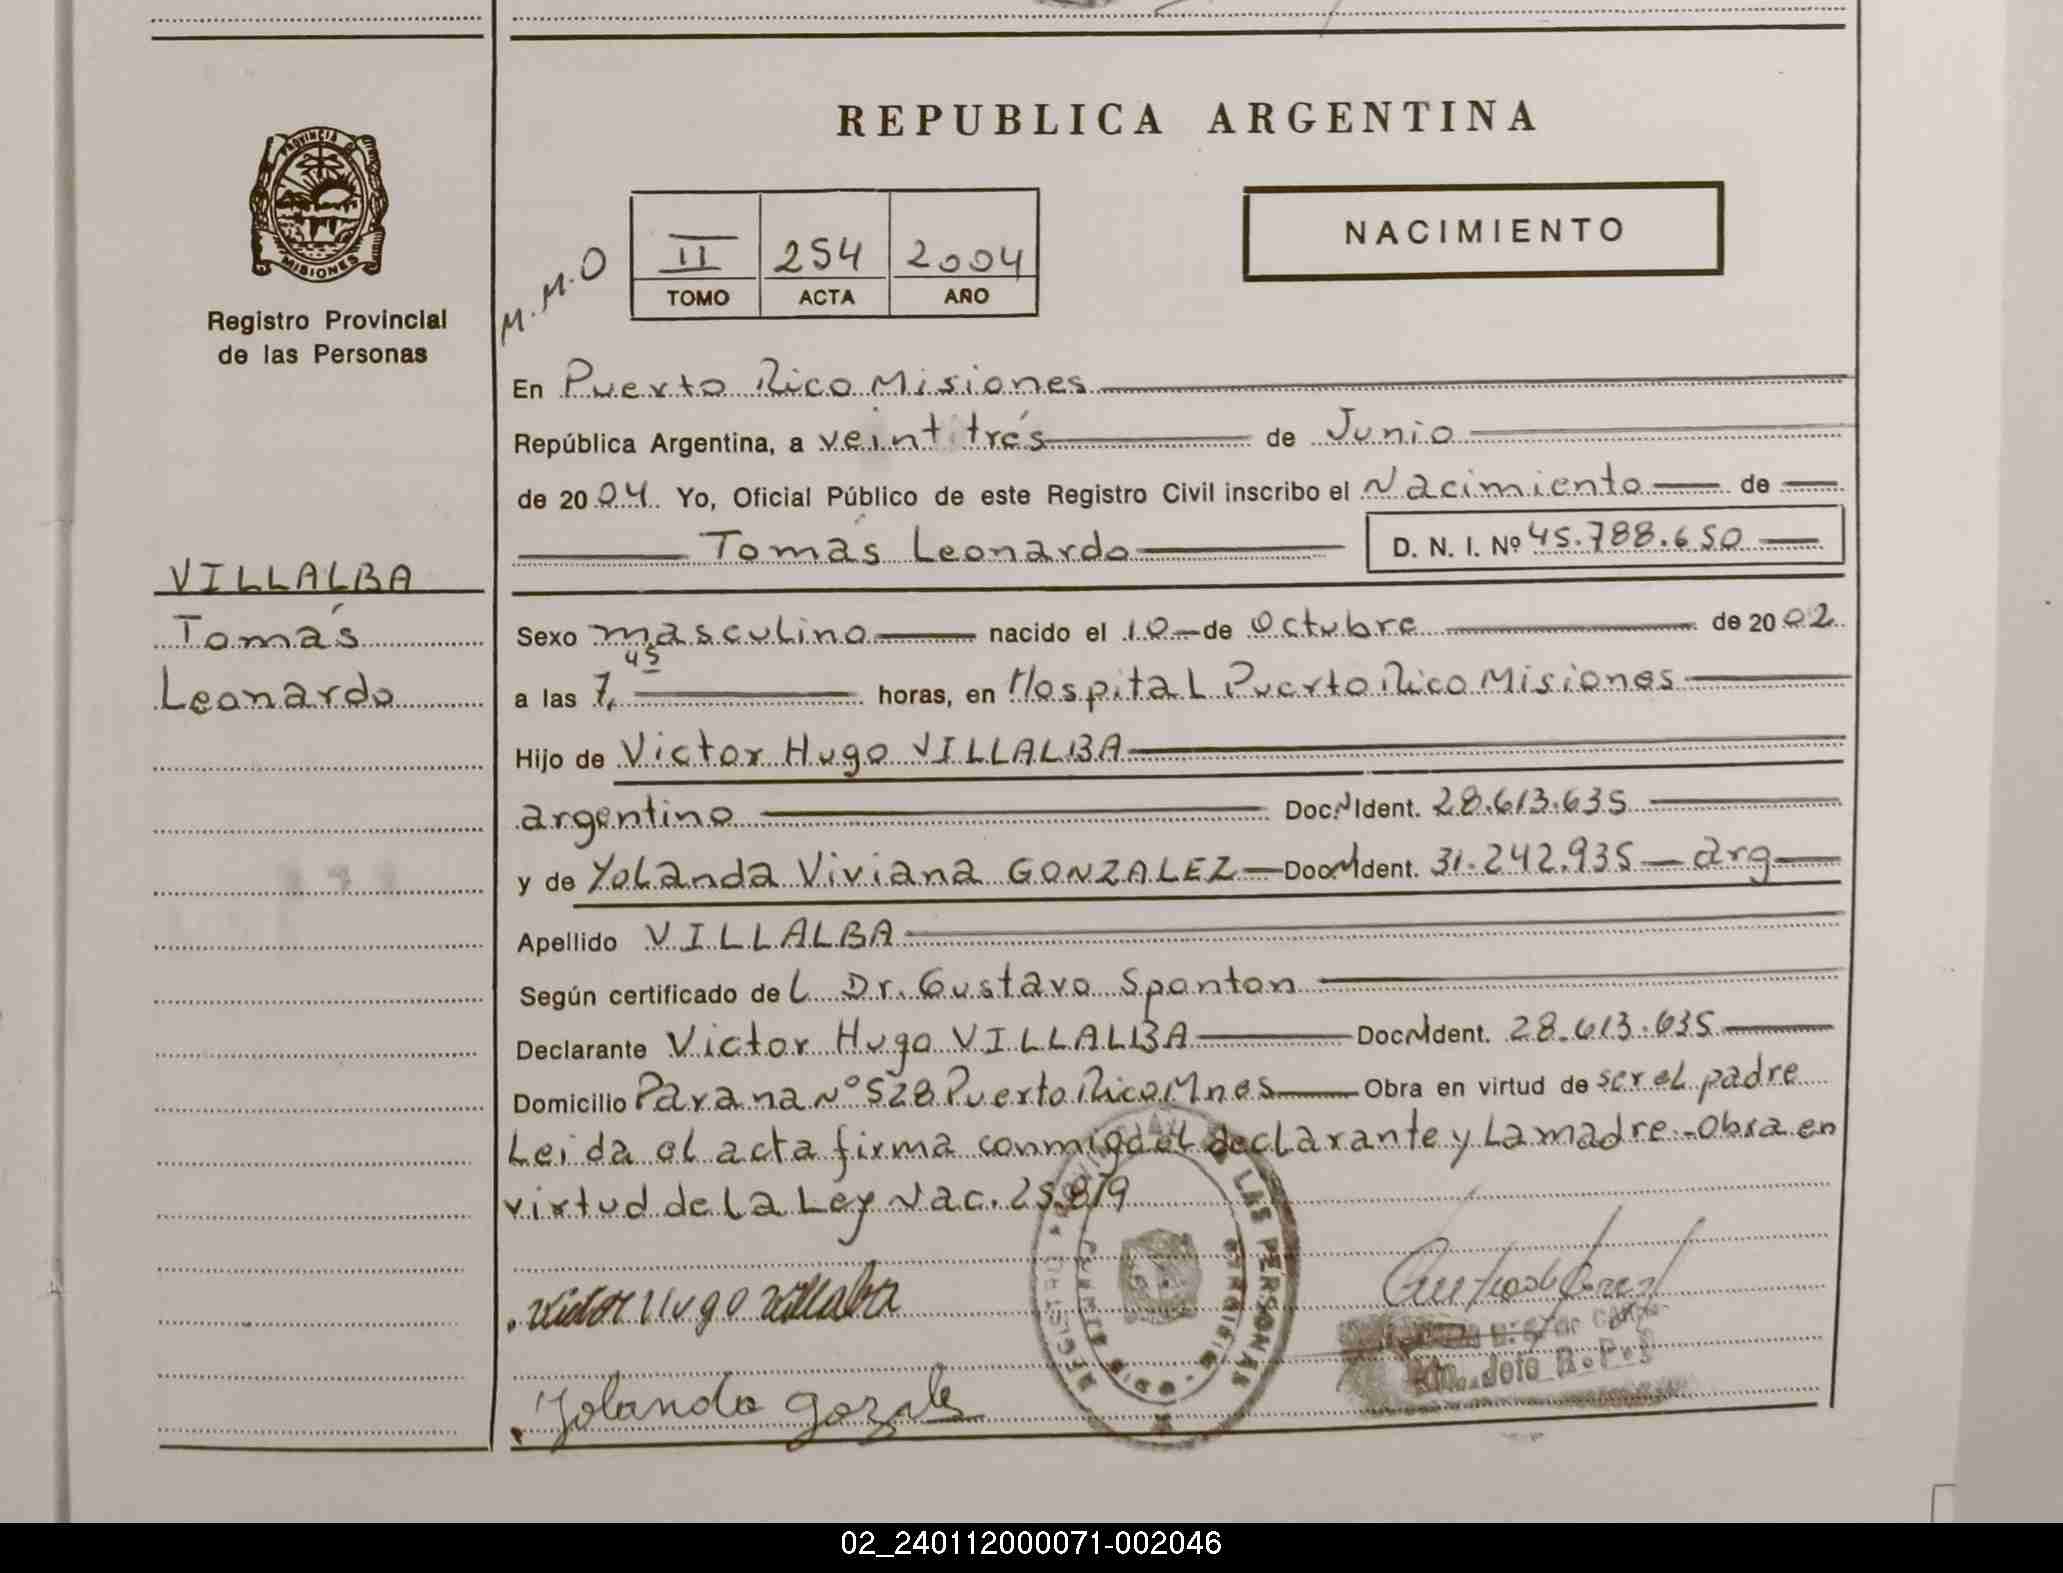 REPUBLICA ARGENTINA
PROVINCIA DE
MISIONES
Registro Provincial
de las Personas
NACIMIENTO
M.M.O
II 254 2004
TOMO ACTA AÑO
En Puerto Rico Misiones
República Argentina, a veintitrés de Junio
de 2004 Yo, Oficial Público de este Registro Civil inscribo el Nacimiento de
Tomás Leonardo D. N. I. Nº 45.788.650
VILLALBA
Tomás
Leonardo
Sexo masculino nacido el 10 de Octubre de 2002
a las 7,45 horas, en Hospital Puerto Rico Misiones
Hijo de Victor Hugo VILLALBA
argentino Doc.N Ident. 28.613.635
y de Yolanda Viviana GONZALEZ Doc.N Ident. 31.242.935 arg
Apellido VILLALBA
Según certificado de L Dr. Gustavo Sponton
Declarante Victor Hugo VILLALBA Doc.N Ident. 28.613.635
Domicilio Parana Nº 528 Puerto Rico Mnes Obra en virtud de ser el padre
Leida el acta firma conmigo el declarante y La madre - Obra en
virtud de la Ley Nac. 25.819
REGISTRO PROVINCIAL DE LAS PERSONAS
Victor Hugo Villalba
Jolanda gozalez
02_240112000071-002046